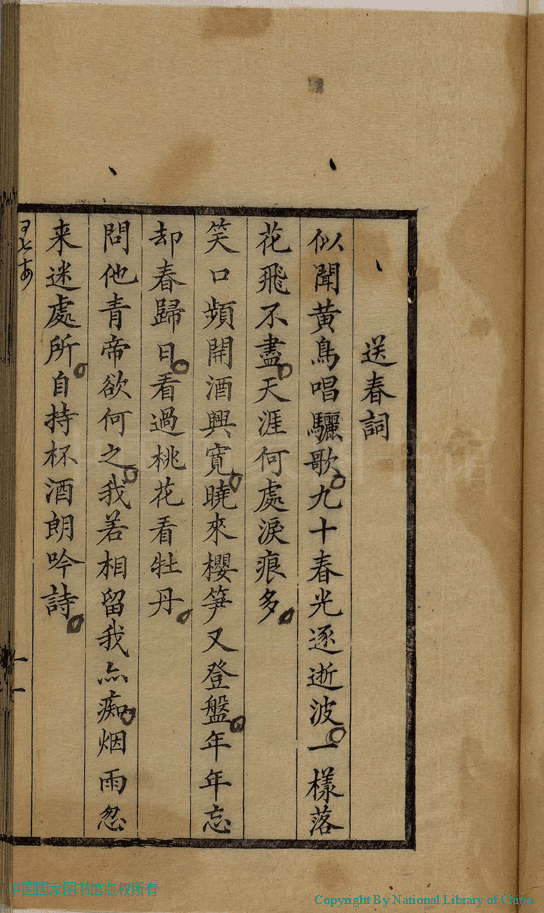 送春詞
似聞黃鳥唱驪歌九十春光逐逝波一樣落
花飛不盡天涯何處淚痕多
笑口頻開酒興寬曉來櫻笋又登盤年年忘
却春歸日看過桃花看牡丹
問他青帝欲何之我若相留我亦痴烟雨忽
来迷處所自持杯酒朗吟詩
中国国家图书馆版权所有
Copyright By National Library of China